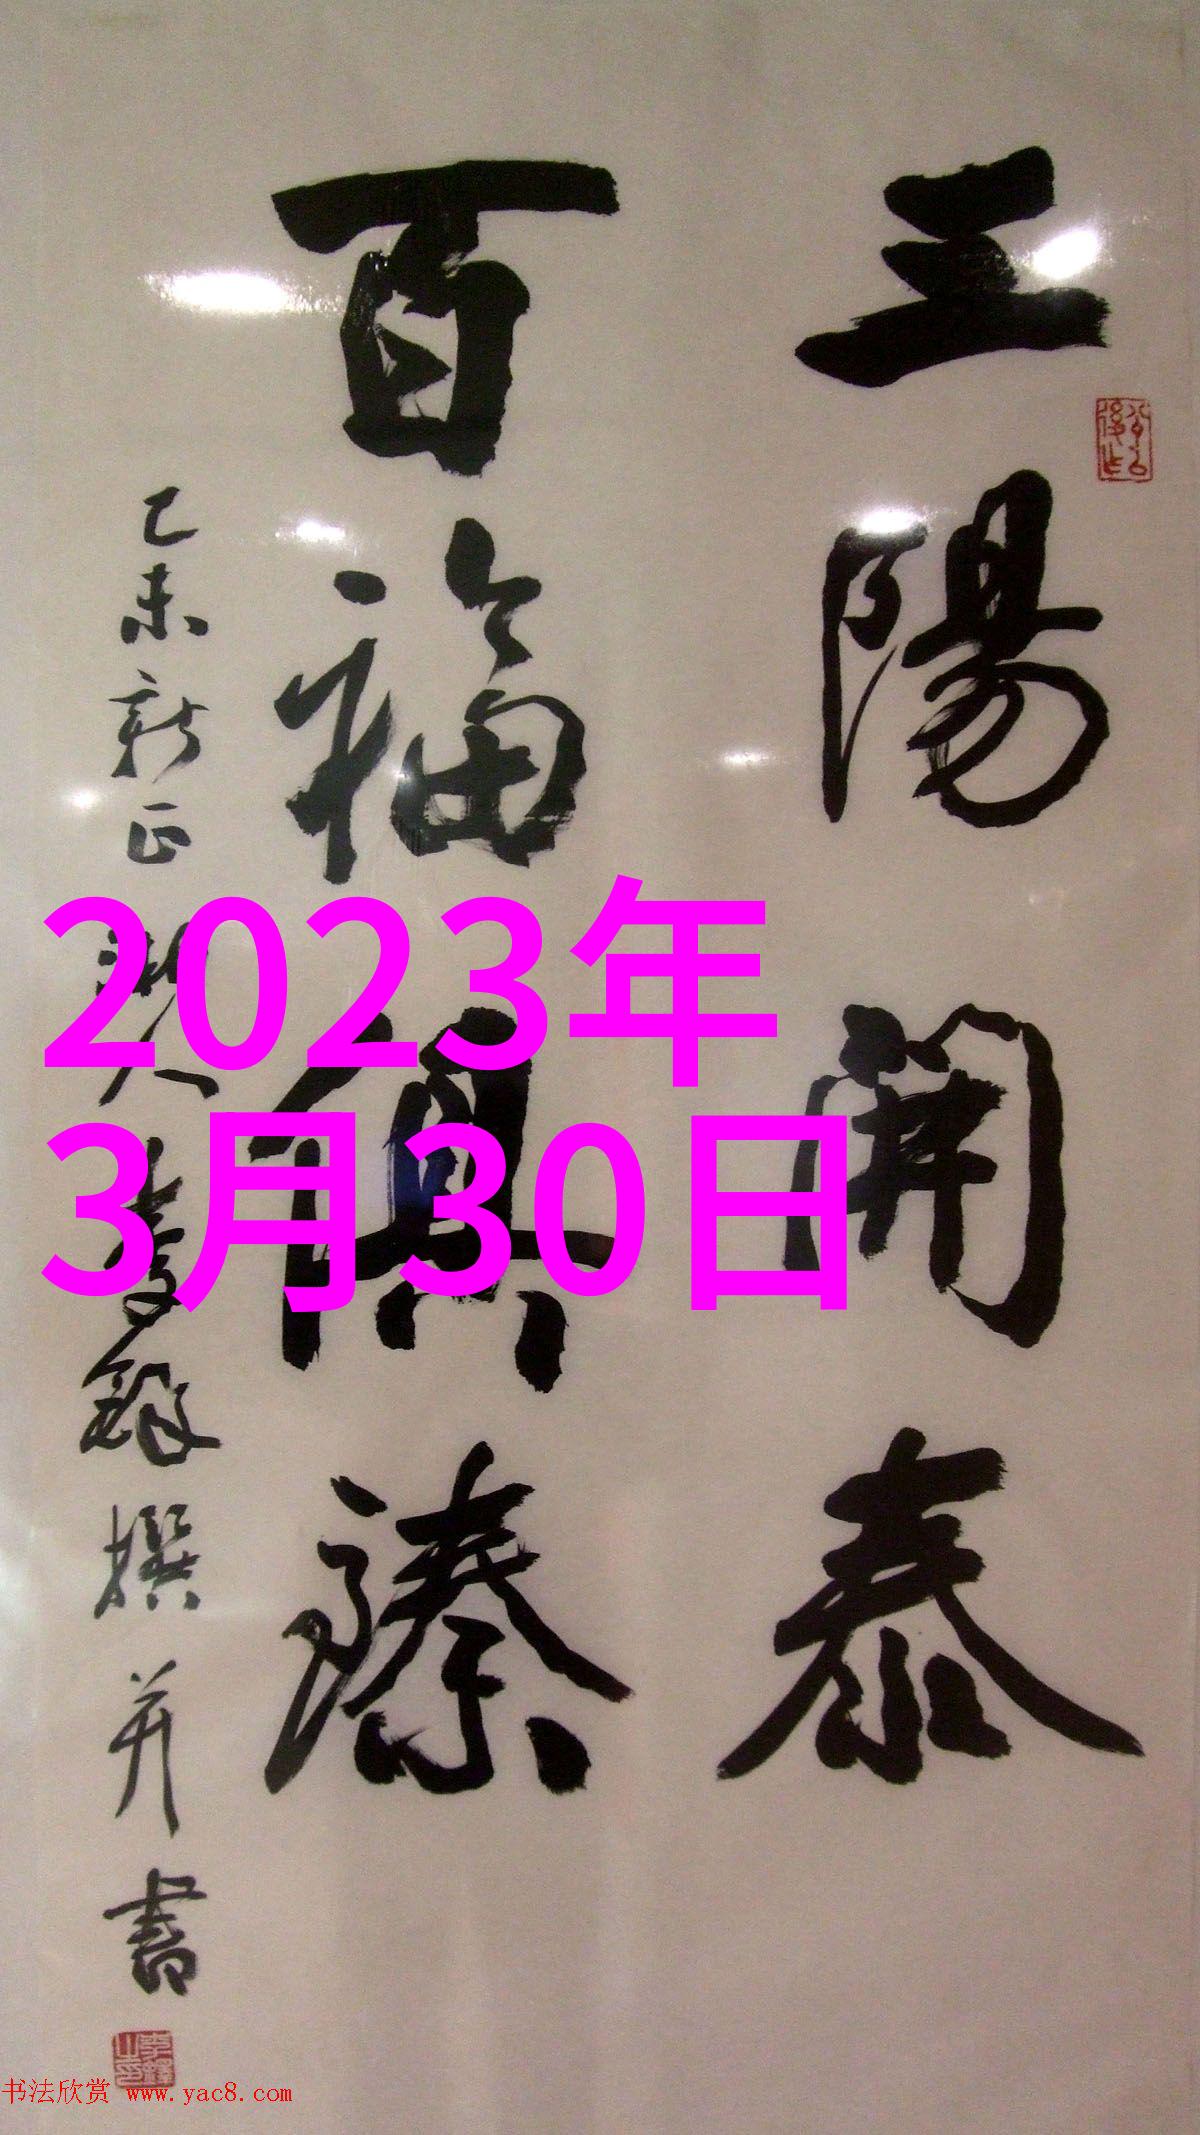 三陽開泰
百福俱臻
乙未新正
撰并書
2023年
3月30日
书法欣赏 www.yac8.com